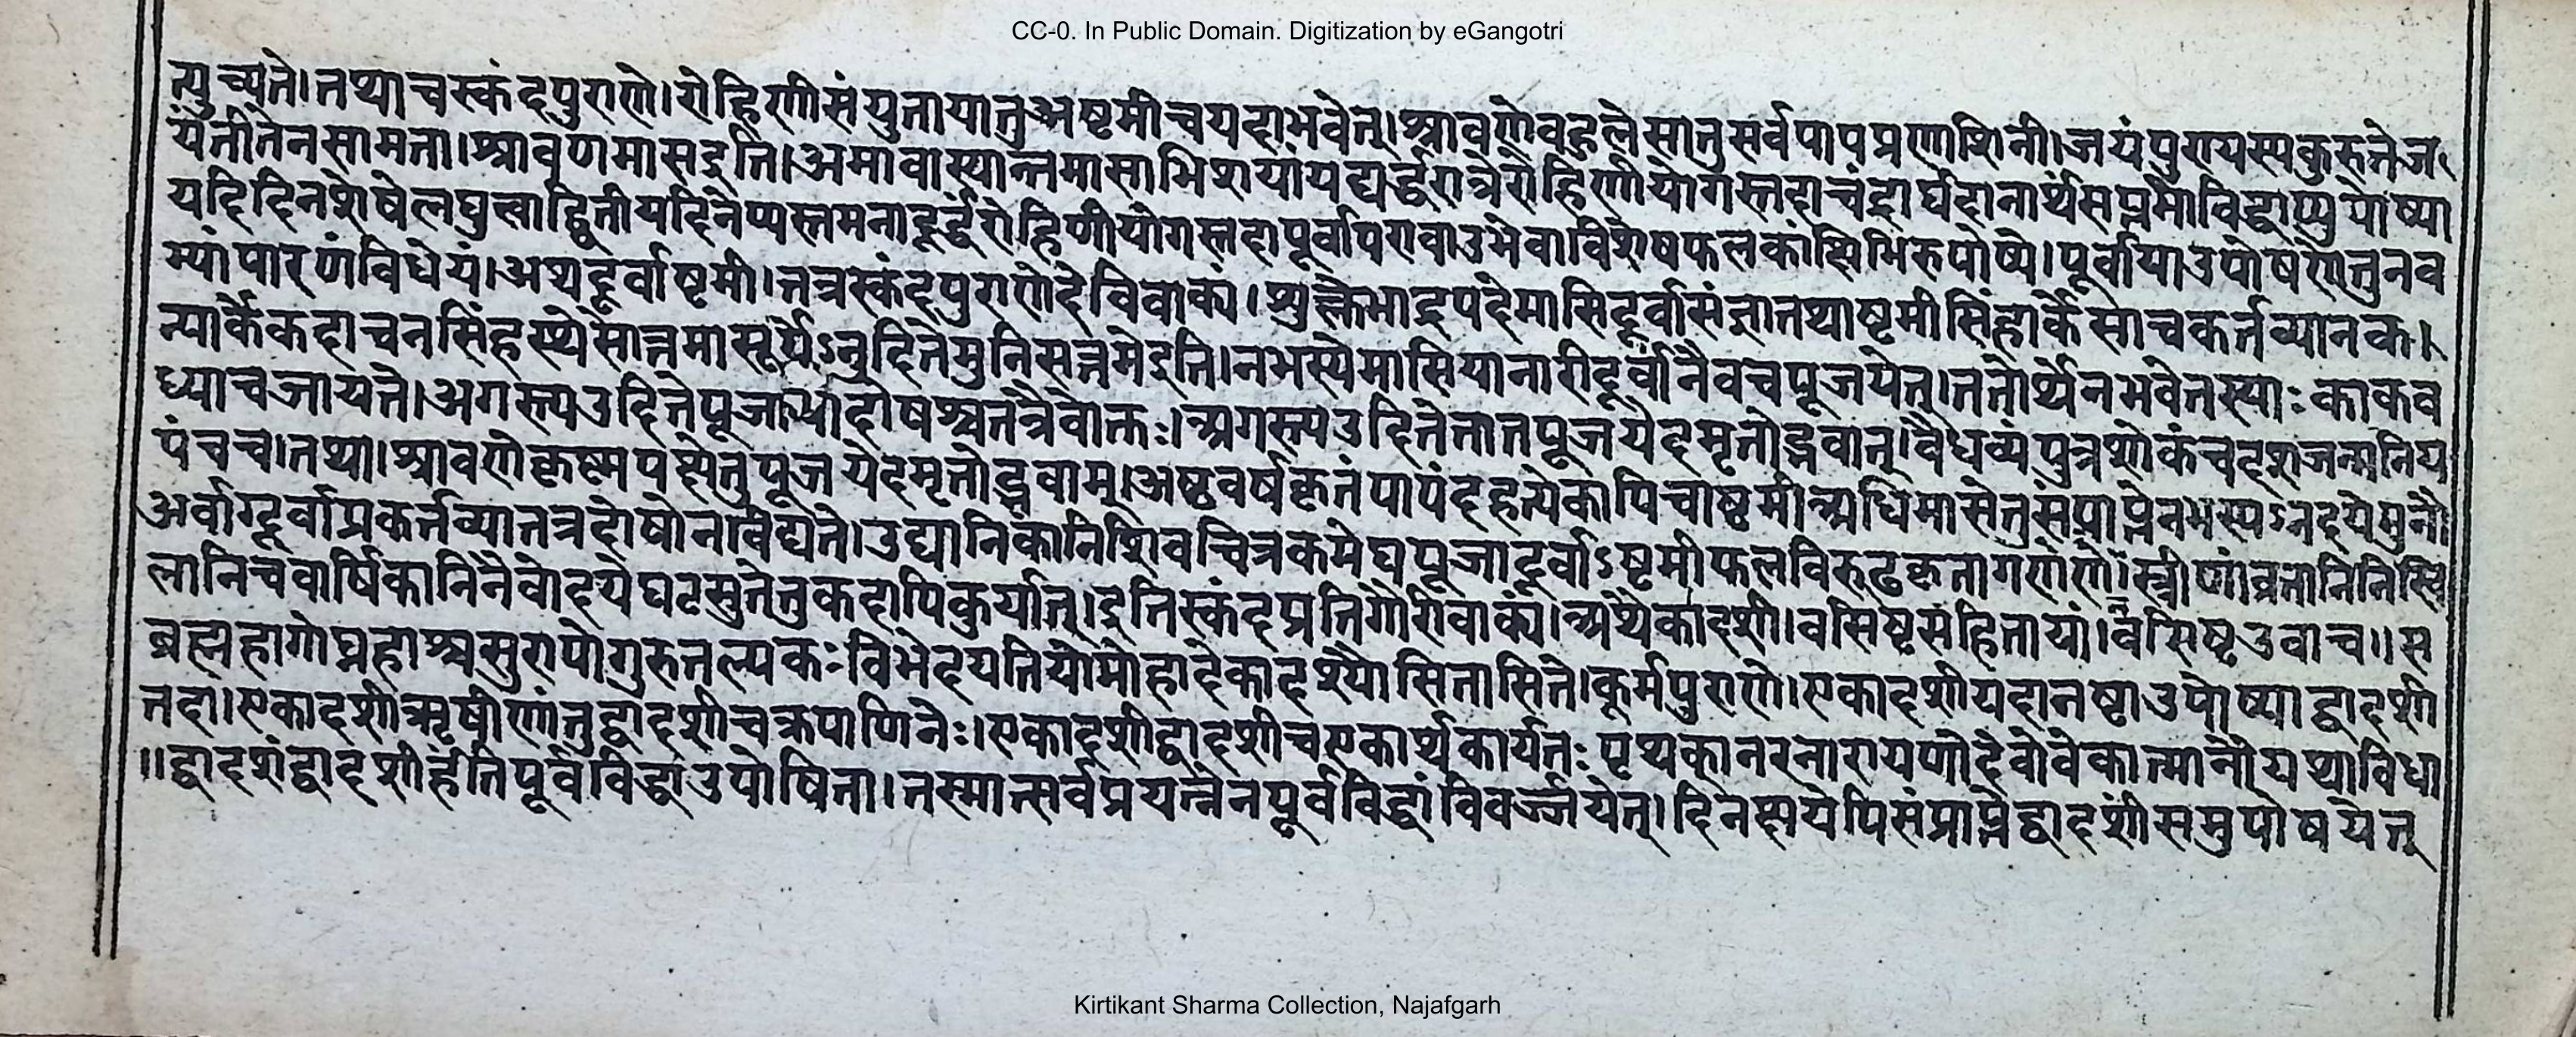 CC-0. In Public Domain. Digitization by eGangotri
त्युच्यते।तथाचस्कंदपुराणे।रोहिणीसंयुतायातुअष्टमीचयदाभवेत्।श्रावणेवहुलेसातुसर्वपापप्रणाशिनी।जयंपुण्यस्यकुरुतेज
यंतीतेनसामता।श्रावणमासइति।अमावास्यान्तमासाभिप्रायां यद्यर्द्धरात्रेरोहिणीयोगस्तदाचंद्रार्घदानार्थंसप्तमीविद्धाप्युपोष्या
यदिदिनशेषेलघुत्वाद्द्वितीयदिनेप्यस्तमनादूर्द्ध्वंरोहिणीयोगस्तदापूर्वापरावाउभेवाविशेषफलकांक्षिभिरुपोष्ये।पूर्वायाउपोषणेतुनव
म्यांपारणंविधेयं।अथदूर्वाष्टमी।तत्रस्कंदपुराणेदेविवाक्यं।शुक्लेभाद्रपदेमासिदूर्वासंज्ञातथाष्टमीसिंहार्केसाचकर्तव्यानक
न्यार्केकदाचनसिंहस्थेसोत्तमासूर्येऽनुदितेमुनिसत्तमेइति।नभस्येमासियानारीदूर्वांनैवचपूजयेत्।ततोर्थेनभवेतस्याःकाकव
ध्याचजायते।अगस्त्यउदितेपूजायांदोषश्चतत्रैवोक्तः।अगस्त्यउदितेतातपूजयेदमृतोद्भवान्।वैधव्यंपुत्रशोकंचदशजन्मानिय
पंचच।तथा।श्रावणेकृष्णपक्षेतुपूजयेदमृतोद्भवाम्।अष्टवर्षकृतंपापंदहत्येकापिचाष्टमीअधिमासेतुसंप्राप्तेनभस्यऽनदयेमुनौ
अर्वाग्दूर्वाप्रकर्त्तव्यातत्रदोषोनविद्यते।उद्यानिकानिशिवचित्रकमेघपूजादूर्वाऽष्टमीफलविरुढकृतागरणे।स्त्रीणांव्रतानिनिखि
लानिचवार्षिकानिनैवोदयेघटसुतेतुकदापिकुर्यात्।इतिस्कंदप्रतिगौरीवाक्यं।अथैकादशी।वसिष्टसंहितायां।वसिष्टउवाच॥स
ब्रह्महागोघ्नहाश्चसुरापोगुरुतल्पकःविभेदयतियोमोहादेकादश्यौसितासिते।कूर्मपुराणे।एकादशीयदानष्टाउपोष्याद्वादशी
तदा।एकादशीऋषीणांतुद्वादशीचक्रपाणिनेः।एकादशीद्वादशीचएकार्थकार्यतःपृथक्कानरनारायणौदेवोवेकात्मानौयथाविधा
॥द्वादशंद्वादशीर्हंतिपूर्वविद्धाउपोषिता।तस्मात्सर्वप्रयत्नेनपूर्वविद्धांविवर्ज्जयेत्।दिनक्षयेपिसंप्राप्तेद्वादशींसमुपोषयेत्
Kirtikant Sharma Collection, Najafgarh